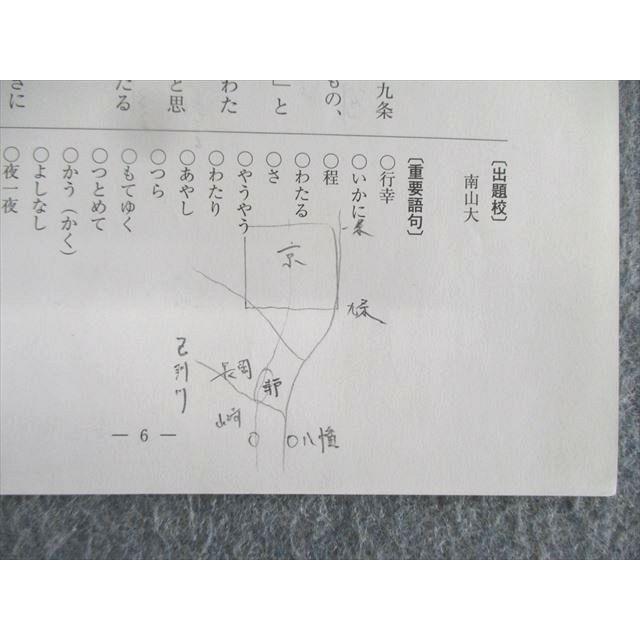 九条
もの、
」と
わた
と思
たる
さに
〔出題校〕
南山大
〔重要語句〕
○行幸
○いかに
○程
○わたる
○さ
○やうやう
○わたり
○あやし
○つら
○もてゆく
○つとめて
○かう（かく）
○よしなし
○夜一夜
京
一条
九条
長岡
山崎
八幡
— 6 —